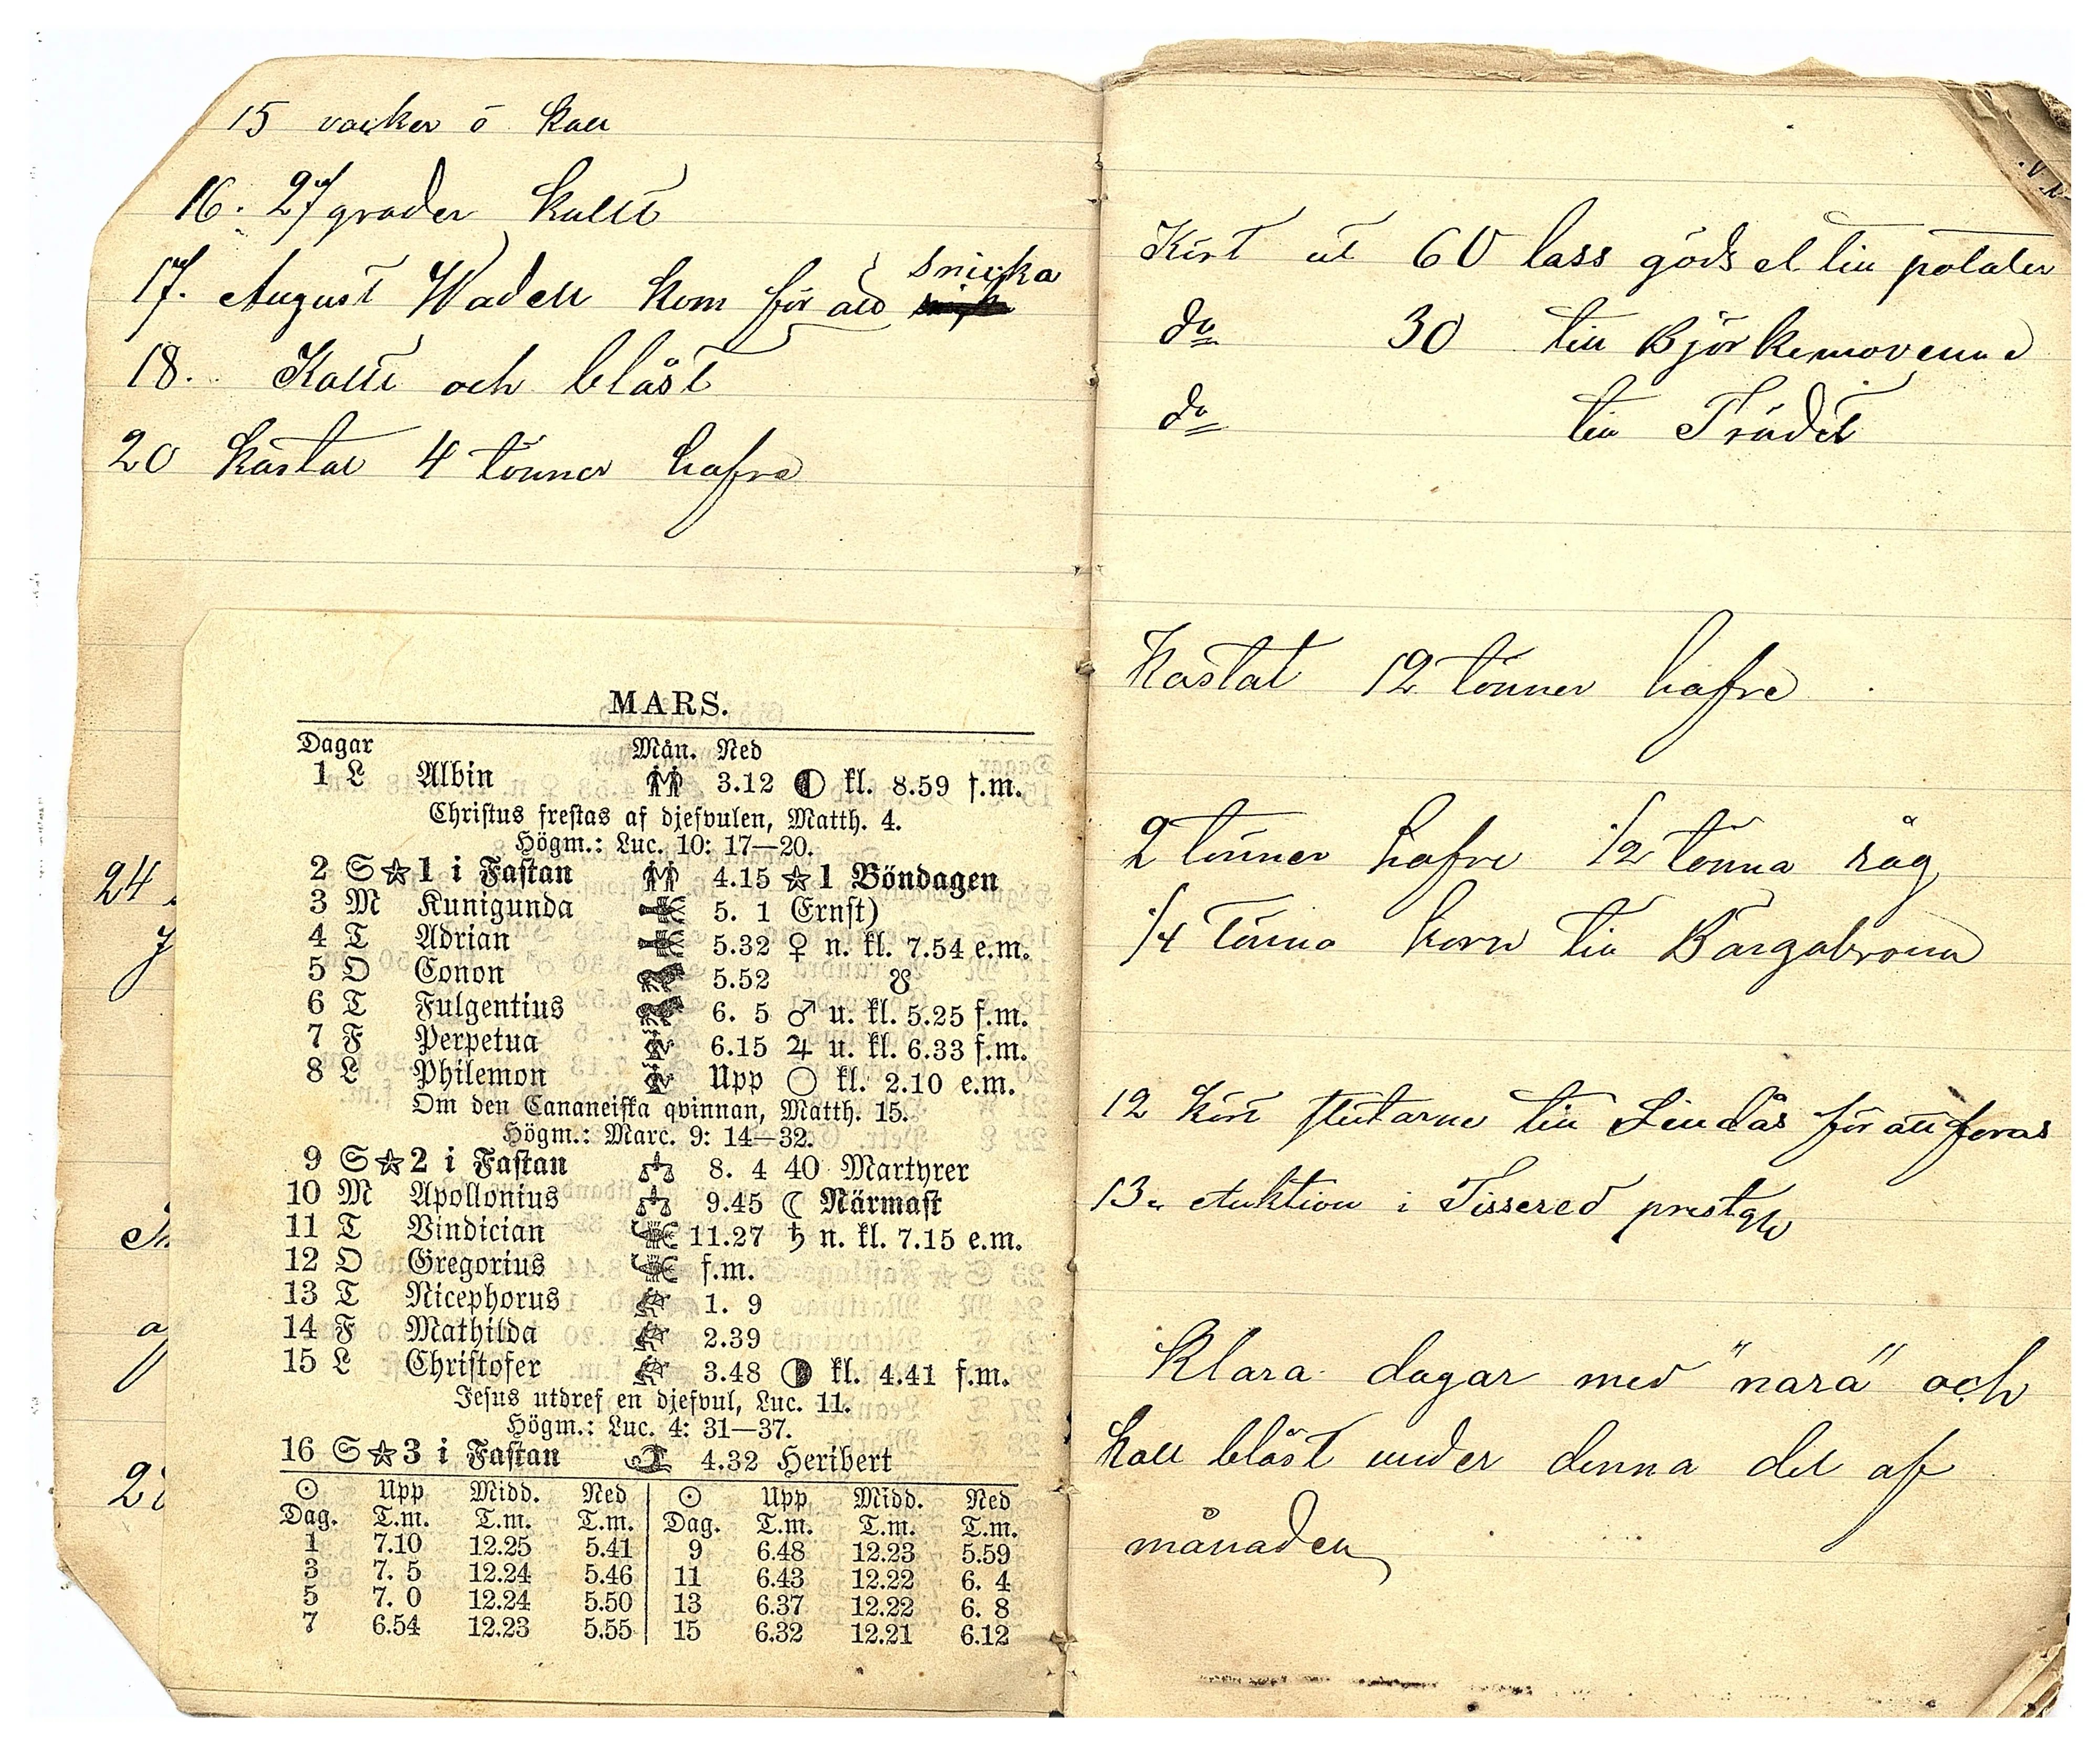 15 vacker o kall
16. 27 grader kallt
17. August Wadell kom för att snicka
18. Kallt och blåst
20 kastat 4 tönner hafre
24
MARS.
Dagar Mån. Ned
1 L Albin 3.12 kl. 8.59 f.m.
Christus frestas af djefvulen, Matth. 4.
Högm.: Luc. 10: 17—20.
2 S ☆ 1 i Fastan 4.15 ☆ 1 Böndagen
3 M Kunigunda 5. 1 Ernst)
4 T Adrian 5.32 ♀ n. kl. 7.54 e.m.
5 O Conon 5.52 ☋
6 T Fulgentius 6. 5 ♂ u. kl. 5.25 f.m.
7 F Perpetua 6.15 ♃ u. kl. 6.33 f.m.
8 L Philemon Upp ○ kl. 2.10 e.m.
Om den Cananeiska qvinnan, Matth. 15.
Högm.: Marc. 9: 14—32.
9 S ☆ 2 i Fastan 8. 4 40 Martyrer
10 M Apollonius 9.45 ☾ Närmast
11 T Vindician 11.27 ♄ n. kl. 7.15 e.m.
12 O Gregorius f.m.
13 T Nicephorus 1. 9
14 F Mathilda 2.39
15 L Christofer 3.48 kl. 4.41 f.m.
Jesus utdref en djefvul, Luc. 11.
Högm.: Luc. 4: 31—37.
16 S ☆ 3 i Fastan 4.32 Heribert
☉ Upp Midd. Ned ☉ Upp Midd. Ned
Dag. T.m. T.m. T.m. Dag. T.m. T.m. T.m.
1 7.10 12.25 5.41 9 6.48 12.23 5.59
3 7. 5 12.24 5.46 11 6.43 12.22 6. 4
5 7. 0 12.24 5.50 13 6.37 12.22 6. 8
7 6.54 12.23 5.55 15 6.32 12.21 6.12
Kört ut 60 lass gödsel till potater
do 30 till Björkemovenne
do till Trädet
Kastat 12 tönner hafre
2 tönner hafre 1/2 tönna råg
1/4 tönna korn till Bärgabronn
12 kört stutarne till Lindås för att foras
13. Auktion i Tissered
Klara dagar med "nara" och
kall blåst under denna del af
månaden